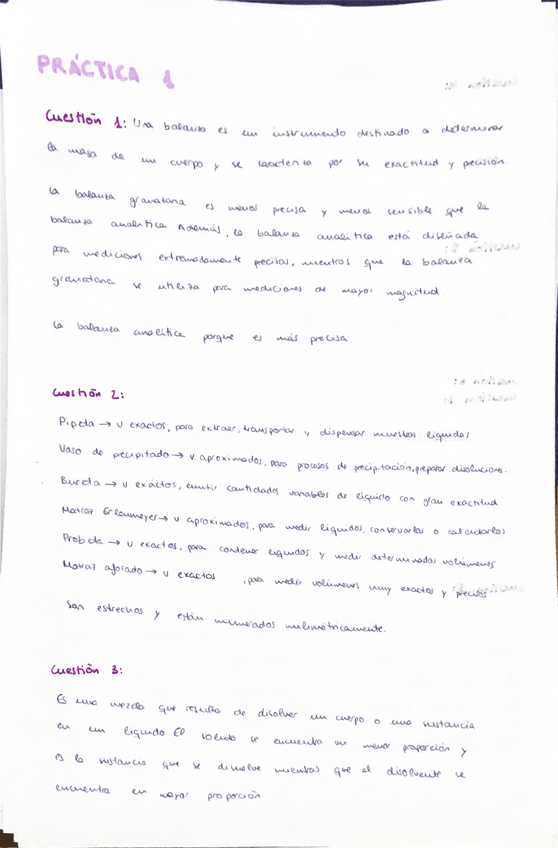 PRÁCTICA 1
Cuestión 1: Una balanza es un instrumento destinado a determinar
la masa de un cuerpo y se caracteriza por su exactitud y precisión.
La balanza granataria es menos precisa y menos sensible que la
balanza analítica Además, la balanza analítica está diseñada
para mediciones extremadamente precisas, mientras que la balanza
granataria se utiliza para mediciones de mayor magnitud.
La balanza analítica porque es más precisa.
Cuestión 2:
Pipeta → v exactos, para extraer, transportar y dispensar muestras líquidas
Vaso de precipitado → v aproximados, para procesos de precipitación, preparar disoluciones.
Bureta → v exactos, emitir cantidades variables de líquido con gran exactitud
Matraz Erlenmeyer → v aproximados, para medir líquidos, conservarlos o calentarlos
Probeta → v. exactos, para contener líquidos y medir determinados volúmenes
Matraz aforado → v exactos , para medir volúmenes muy exactos y precisos
Son estrechos y están numerados milimétricamente.
Cuestión 3:
Es una mezcla que resulta de disolver un cuerpo o una sustancia
en un líquido El soluto se encuentra en menor proporción y
es la sustancia que se disuelve mientras que el disolvente se
encuentra en mayor proporción